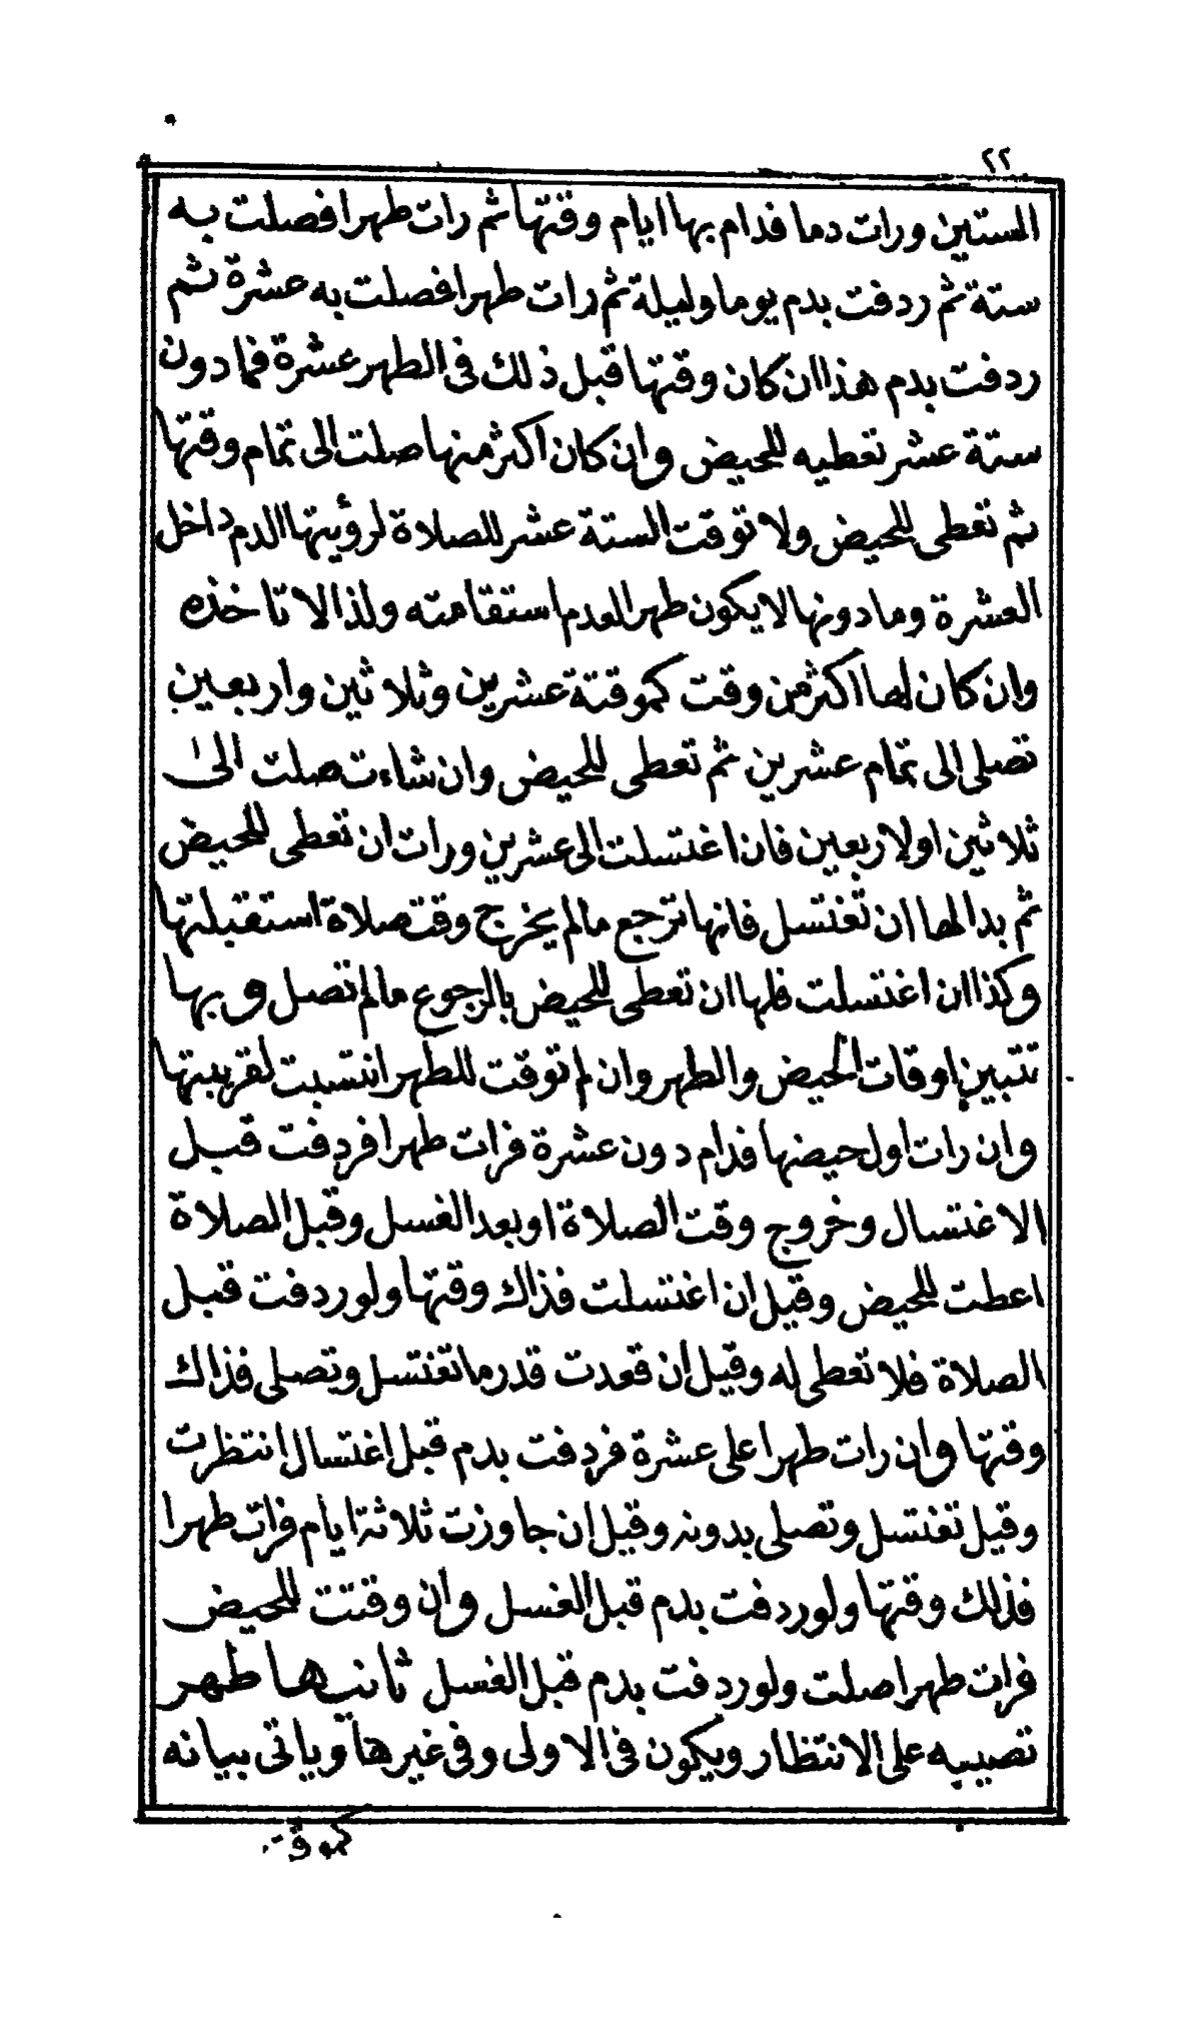 ٢٢
الستين ورات دما فدام بها ايام وقتها ثم رات طهرا فصلت به
ستة ثم ردفت بدم يوما وليلة ثم رات طهرا فصلت به عشرة ثم
ردفت بدم هذا ان كان وقتها قبل ذلك في الطهر عشرة فما دون
ستة عشر تعطيه للحيض وان كان اكثر منها صلت الى تمام وقتها
ثم تعطى للحيض ولا توقت الستة عشر للصلاة لرؤيتها الدم داخل
العشرة وما دونها لا يكون طهرا لعدم استقامته ولذا لا تاخذه
وان كان لها اكثر من وقت كموقتة عشرين وثلاثين واربعين
تصلى الى تمام عشرين ثم تعطى للحيض وان شاءت صلت الى
ثلاثين او لاربعين فان اغتسلت الى عشرين ورات ان تعطى للحيض
ثم بدا لها ان تغتسل فانها ترجع مالم يخرج وقت صلاة استقبلتها
وكذا ان اغتسلت فلها ان تعطى للحيض بالرجوع مالم تصل وبها
تتبين اوقات الحيض والطهر وان لم توقت للطهر انتسبت لقريبتها
وان رات اول حيضها فدام دون عشرة فرات طهرا فردفت قبل
الاغتسال وخروج وقت الصلاة او بعد الغسل وقبل الصلاة
اعطت للحيض وقيل ان اغتسلت فذاك وقتها ولو ردفت قبل
الصلاة فلا تعطى له وقيل ان قعدت قدر ما تغتسل وتصلى فذاك
وقتها وان رات طهرا على عشرة فردفت بدم قبل اغتسال انتظرت
وقيل تغتسل وتصلى بدونه وقيل ان جاوزت ثلاثة ايام فرات طهرا
فذلك وقتها ولو ردفت بدم قبل الغسل وان وقتت للحيض
فرات طهرا صلت ولو ردفت بدم قبل الغسل ثانيها طهر
تصيبه على الانتظار ويكون في الاولى وفي غيرها وياتى بيانه
كموقت